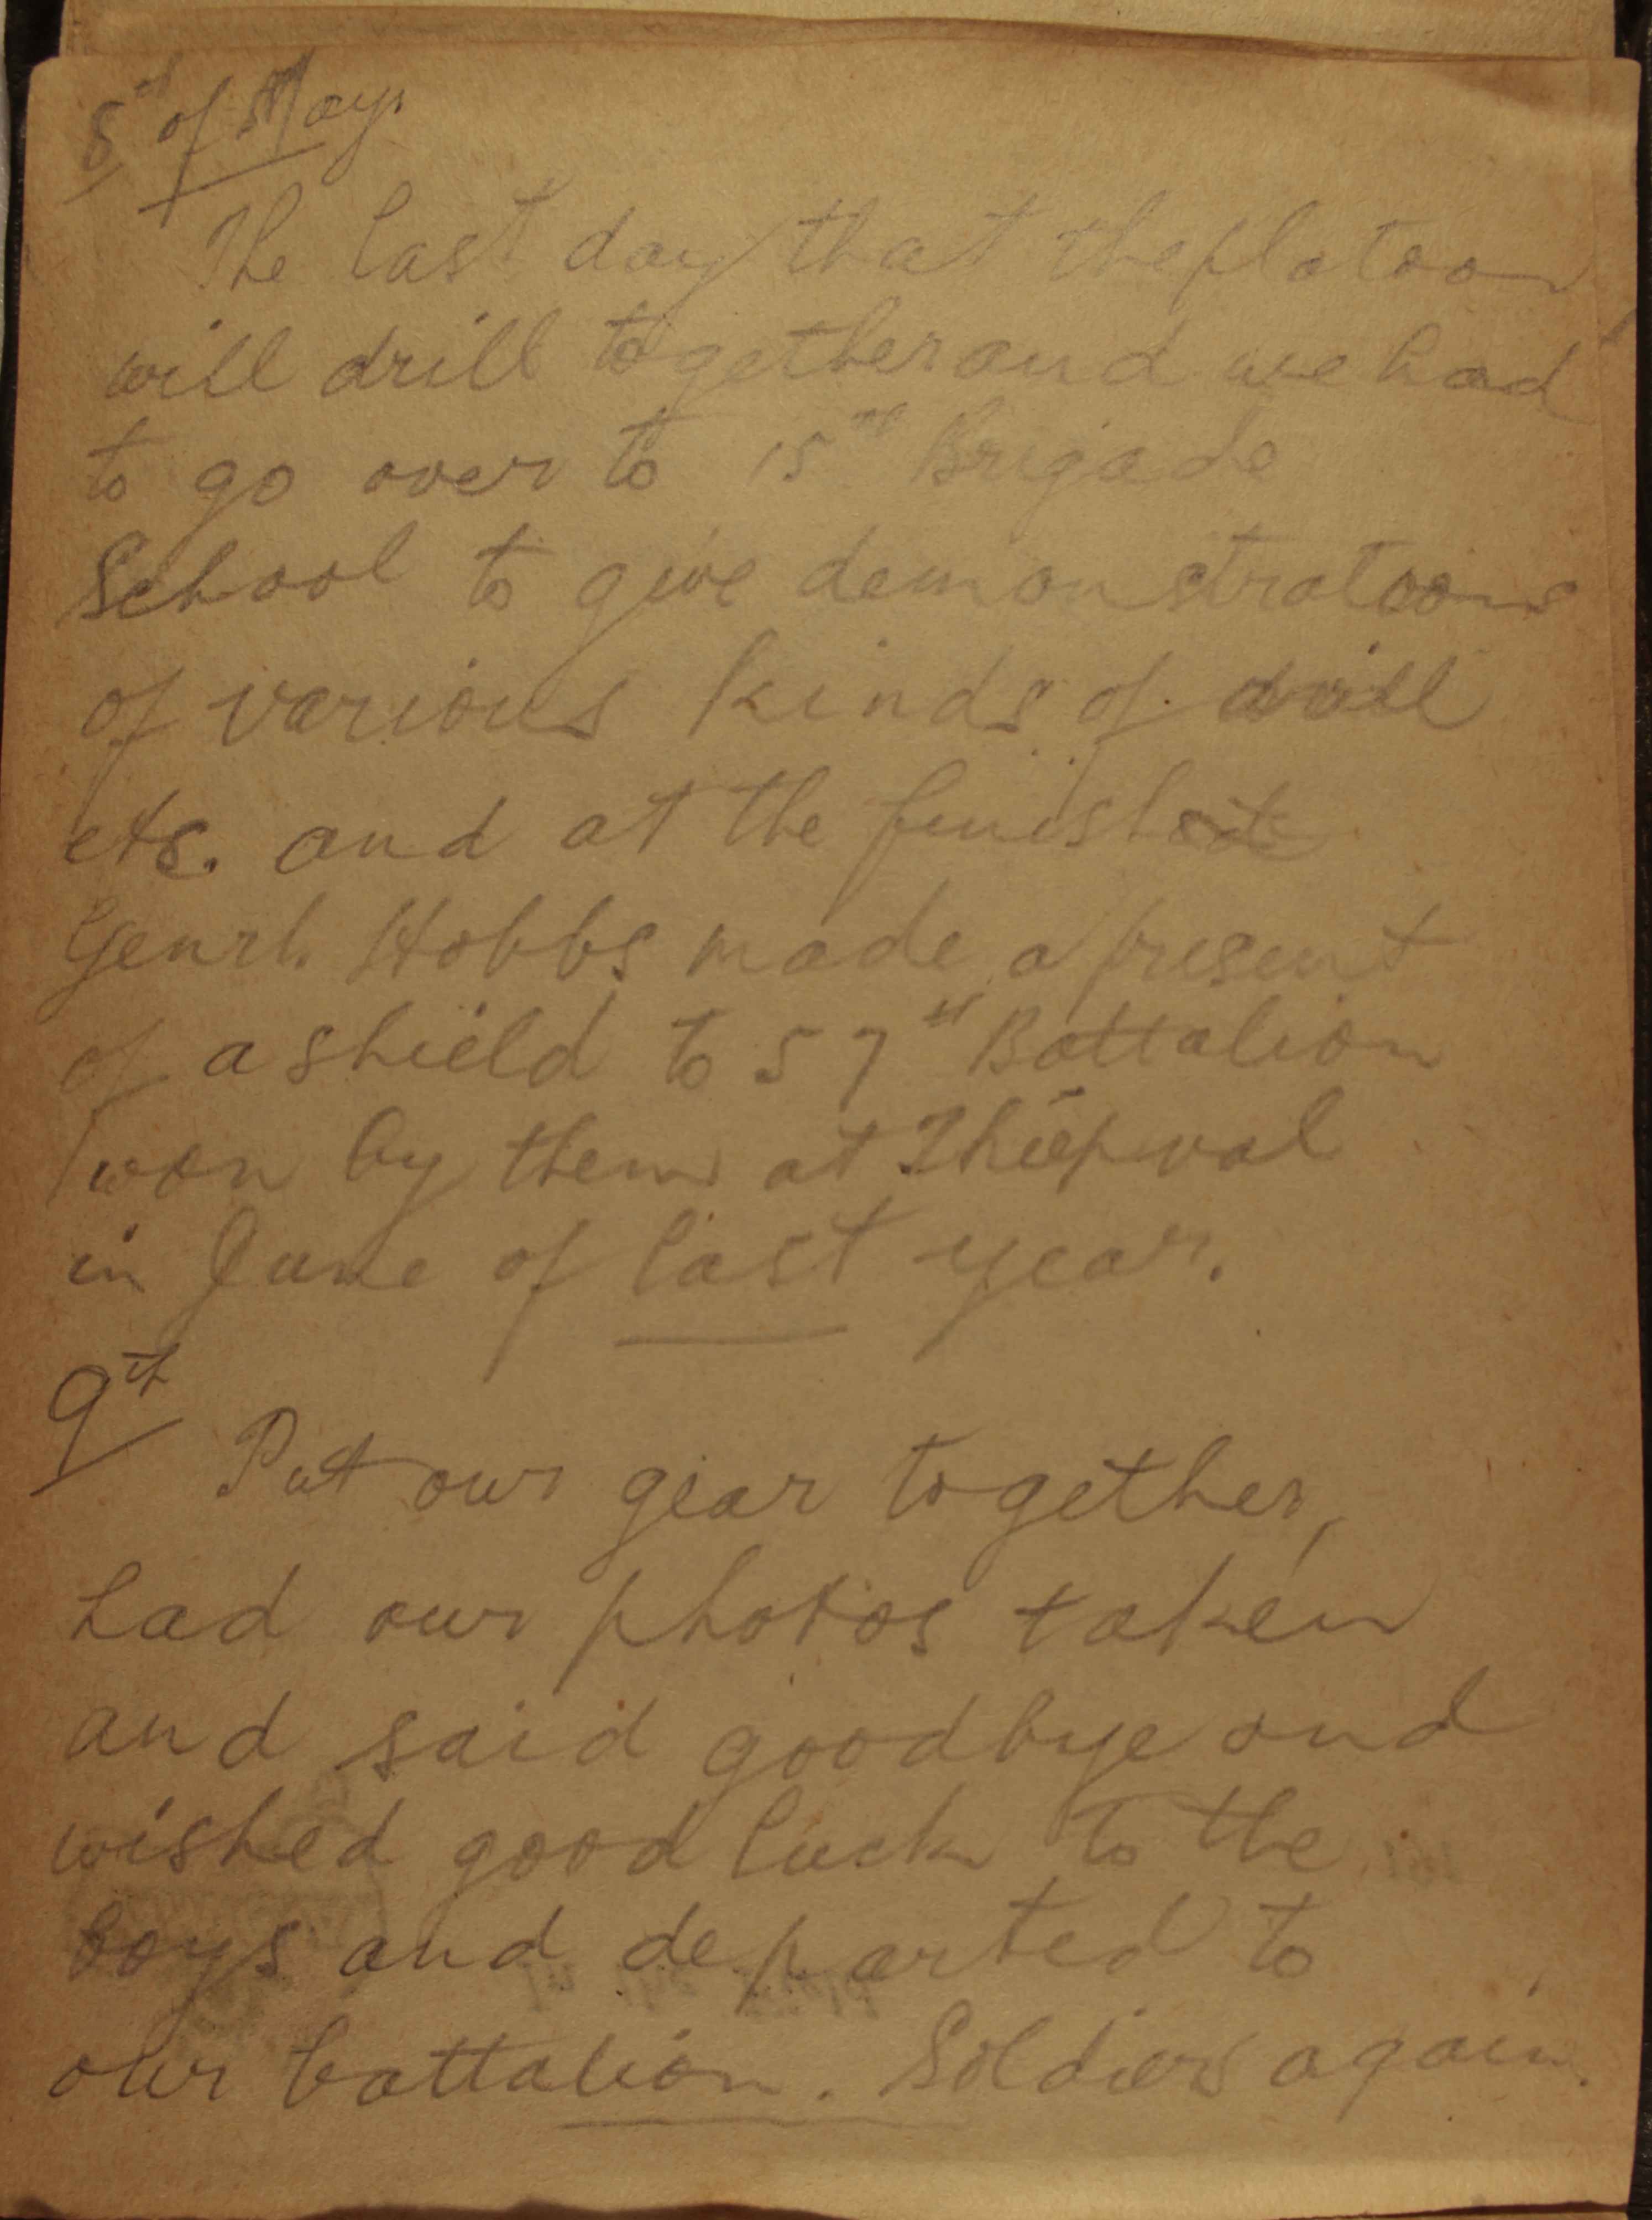 8th of May.
The last day that the platoon
will drill together and we had
to go over to 15th Brigade
School to give demonstratoons
of various kinds of drill
etc. and at the finish
Genrl. Hobbs made a present
of a shield to 57th Battalion
won by them at Thiepval
in June of last year.
9th
Put our gear together,
had our photos taken
and said goodbye and
wished good luck to the
boys and departed to
our battalion. Soldiers again.